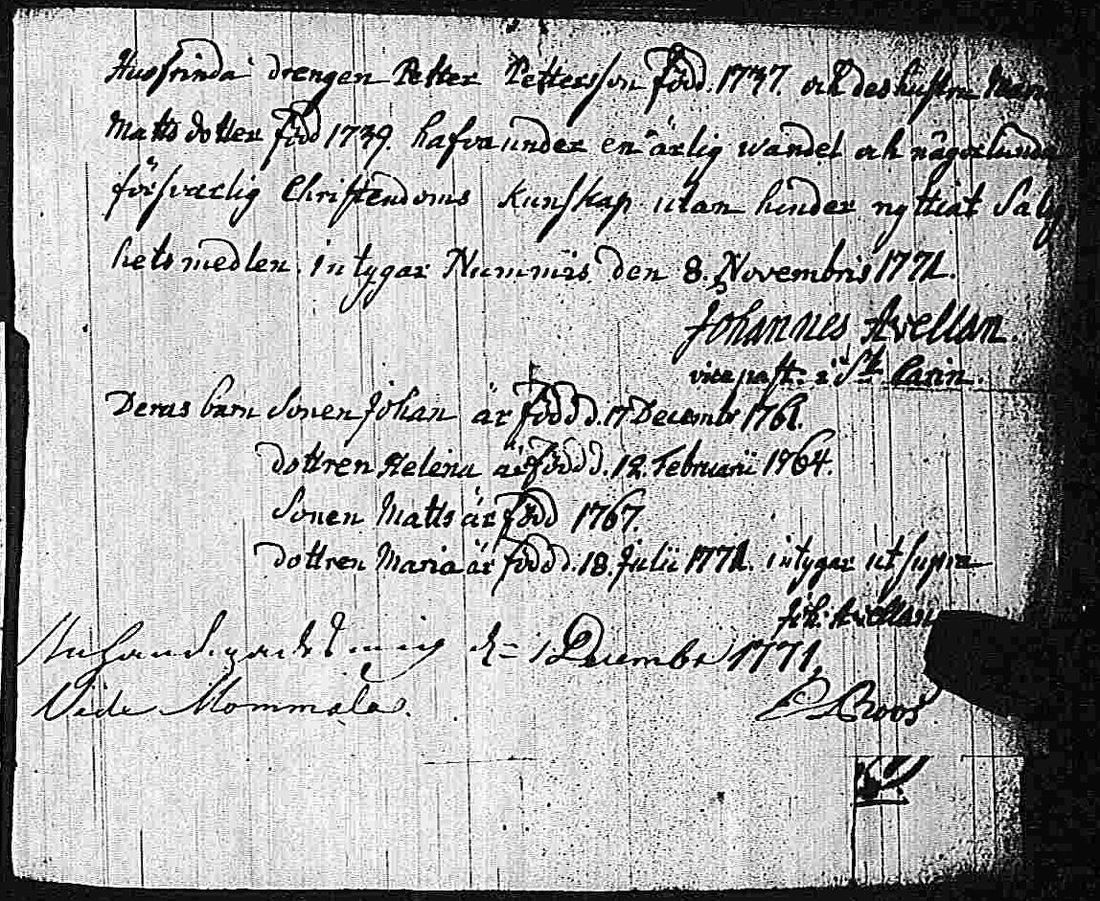 Husfrinda drengen Petter Pettersson född 1737. och des hustru Maria
Matts dotter föd 1739. hafva under en ärlig wandel och någorlunda
försvarlig Christendoms kunskap utan hinder nyttiat Salig
hets medlen. intygar Nummis den 8. Novembris 1771.
Johannes Avellan.
vice past: i St. Carin.
Deras barn Sonen Johan är född d. 17 Decembr 1761.
dottren Helena är född d. 12. Februarii 1764.
Sonen Matts är född 1767.
dottren Maria är född d. 18. Julii 1771. intygar ut supra
Joh: Avellan
mig d. 1 Decembr 1771.
Vide Mommala.
Croos